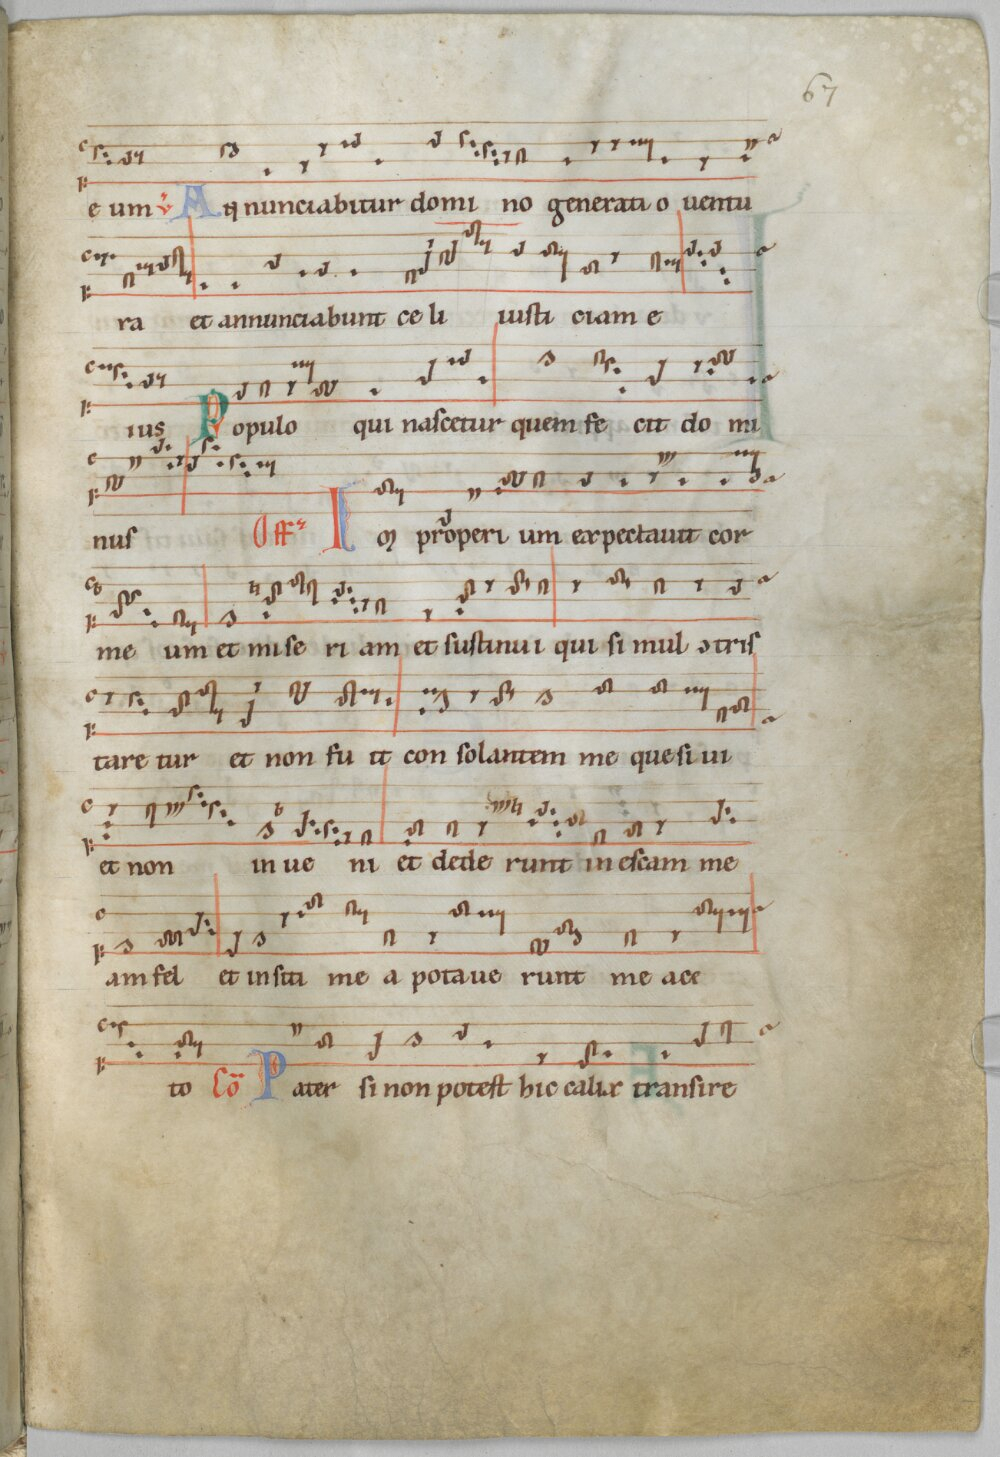 67
e um ℣ Annunciabitur domi no generati o uentu
ra et annunciabunt ce li iusti ciam e
ius Populo qui nascetur quem fe cit do mi
nus Off Im properi um expectauit cor
me um et mise ri am et sustinui qui si mul ɔtris
tare tur et non fu it con solantem me quesi ui
et non in ue ni et dede runt in escam me
am fel et in siti me a potaue runt me ace
to Cō Pater si non potest hic calix transire